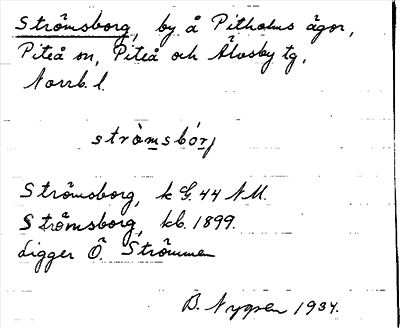 Strömsborg, by å Pitholms ägor,
Piteå sn, Piteå och Älvsby tg,
Norrb. l.
strömsbórj
Strömsborg, k G. 44 N.M.
Strömsborg, kb. 1899.
Ligger Ö. Strömmen
B. Nygren 1934.